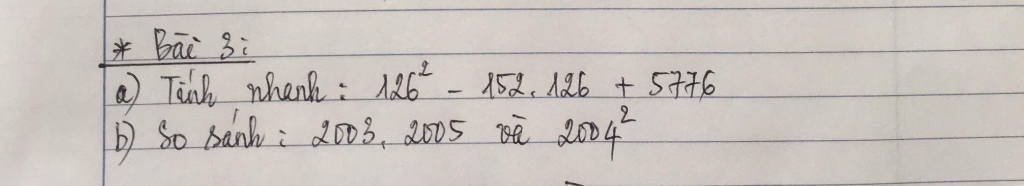 * Bài 3:
a) Tính nhanh: 126² - 152.126 + 5776
b) So sánh: 2003.2005 và 2004²